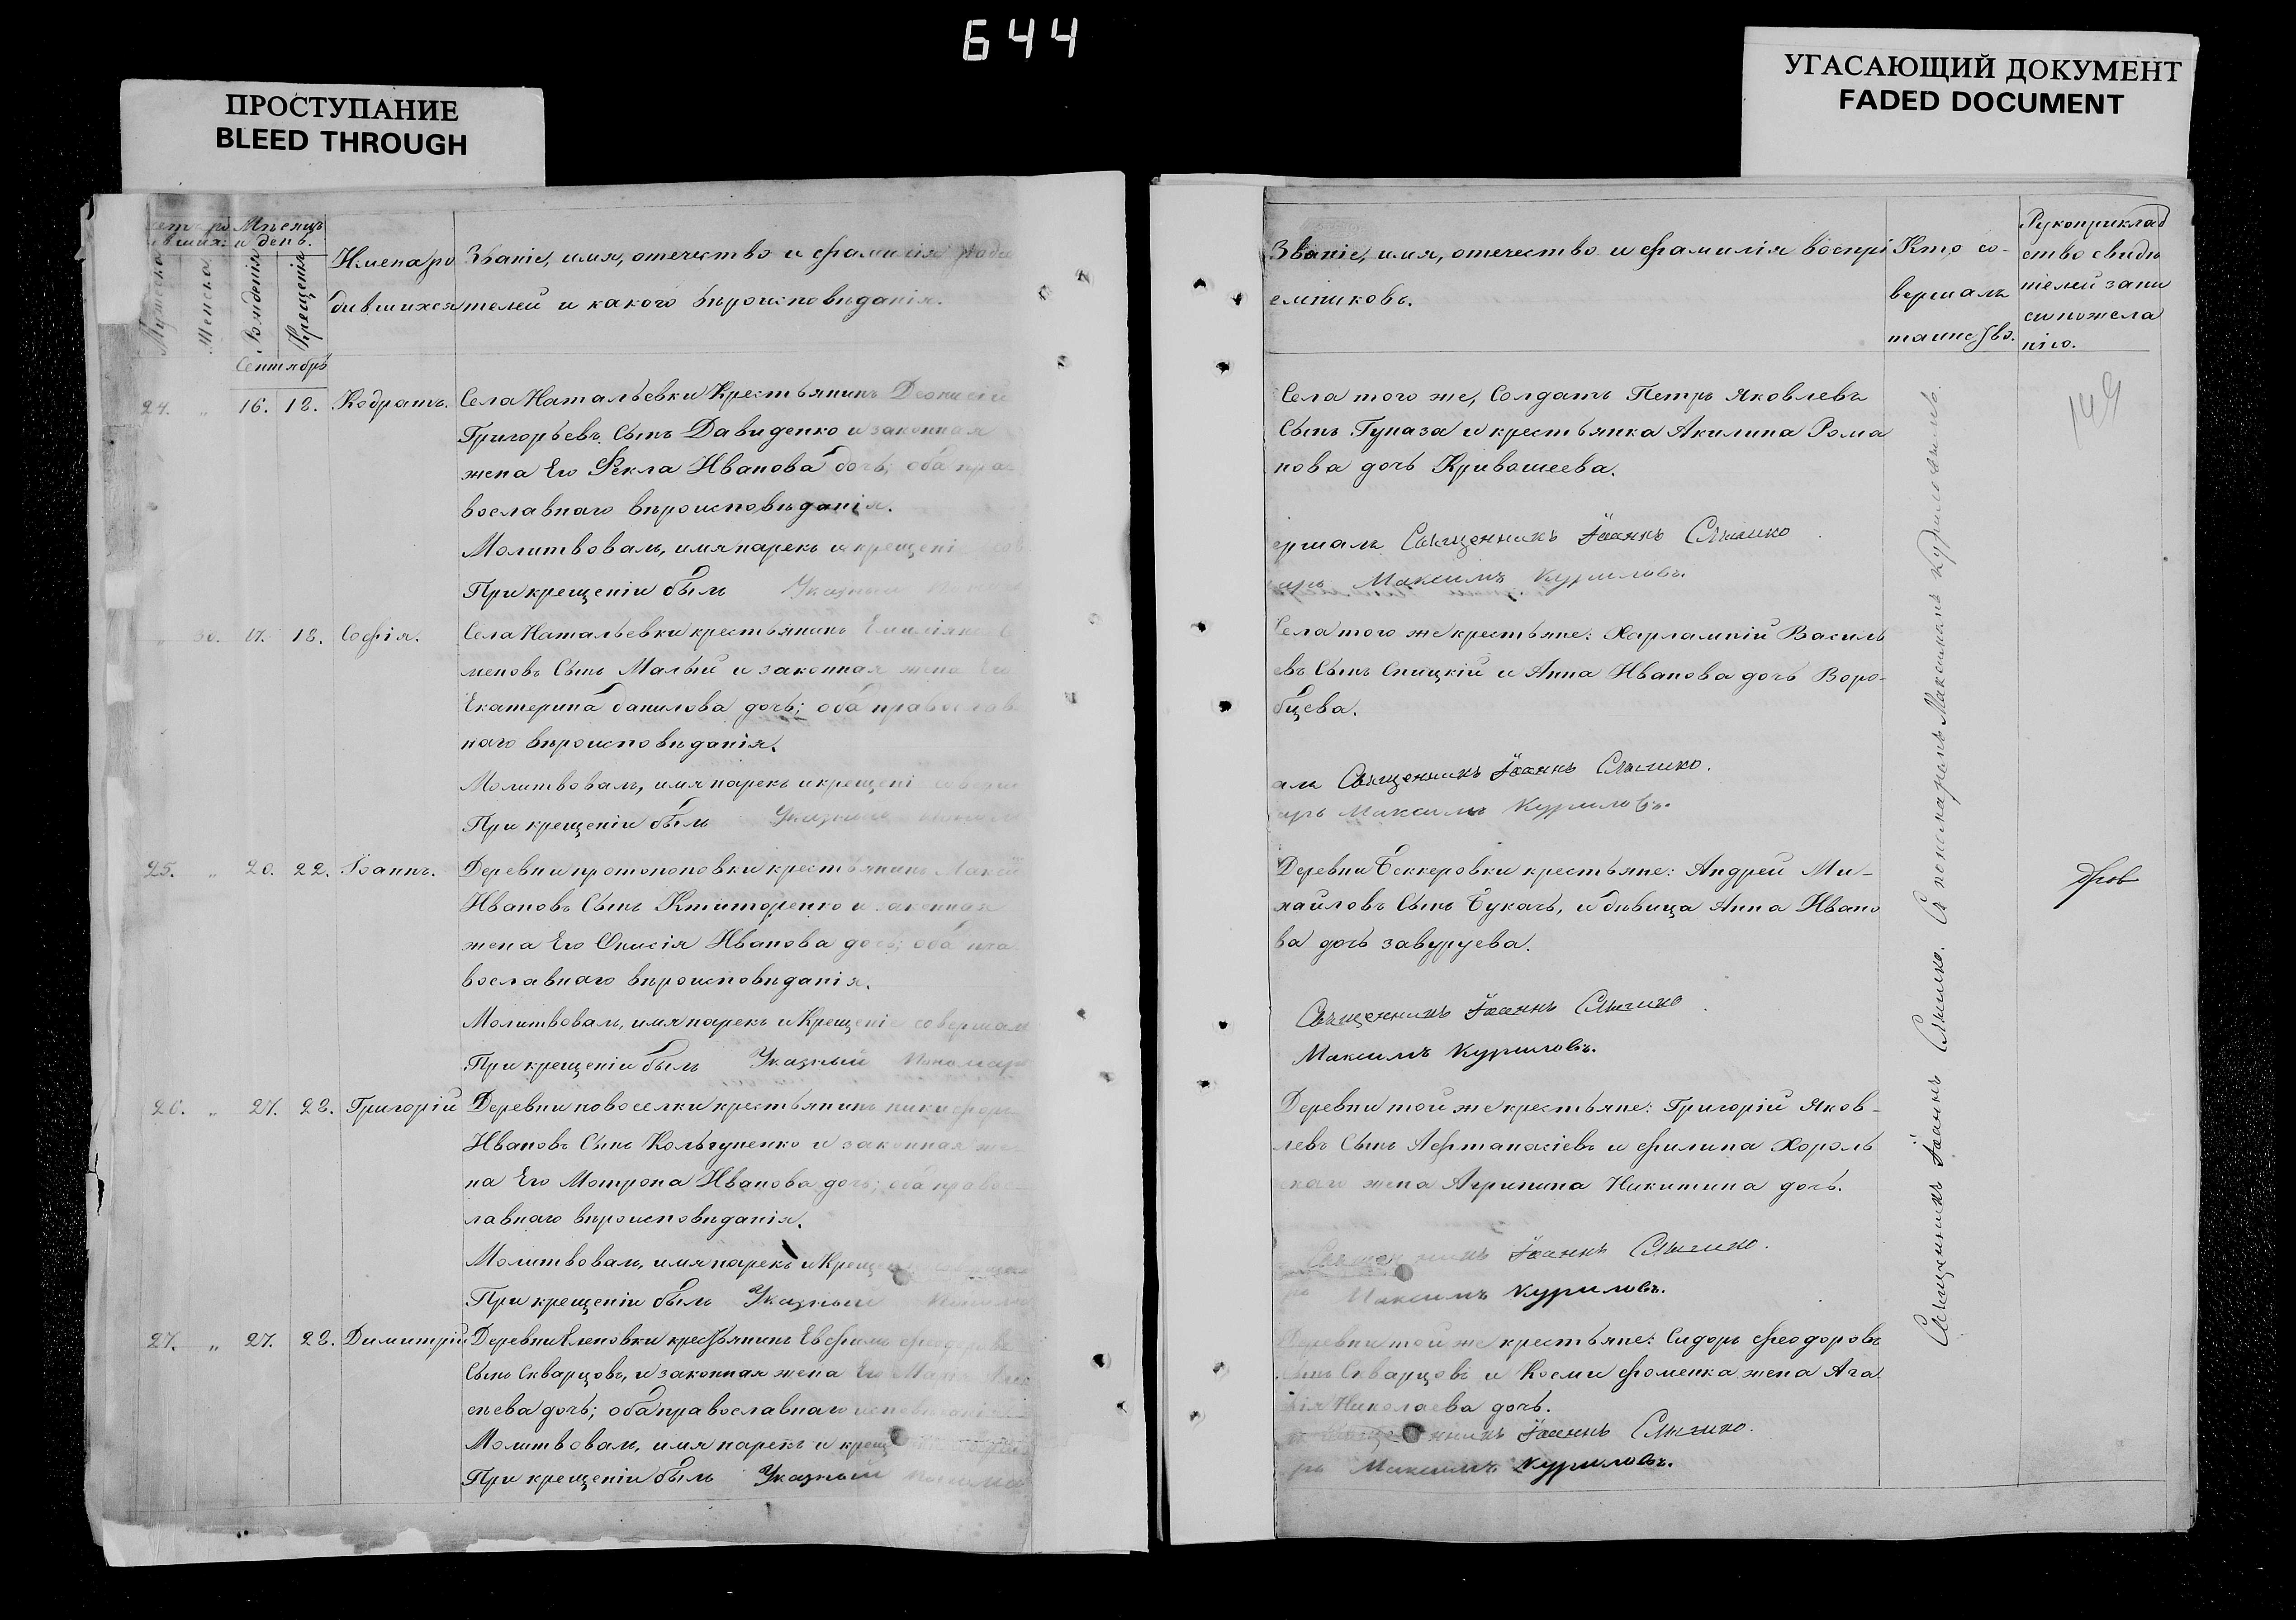 644
ПРОСТУПАНИЕ
BLEED THROUGH
УГАСАЮЩИЙ ДОКУМЕНТ
FADED DOCUMENT
Мѣсяцъ
и день.
Мужеска
Женска
Рожденія
Крещенія
Имена ро
дившихся
Званіе, имя, отечество и фамилія роди
телей и какого вѣроисповѣданія.
Сентябрь
24. „ 16. 18. Кодратъ. Села Натальевки Крестьянинъ Деонисій
Григорьевъ Сынъ Давиденко и законная
жена Его Фекла Иванова дочь; оба пра-
вославнаго вѣроисповѣданія.
Молитвовалъ, имя нарекъ и крещеніе сов
При крещеніи былъ Указный
„ 30. 17. 18. Софія. Села Натальевки крестьянинъ Емиліянъ С
меновъ Сынъ Малый и законная жена Его
Екатерина данилова дочь; оба православ
наго вѣроисповѣданія.
Молитвовалъ, имя нарекъ и крещені соверш
При крещеніи былъ Указный
25. „ 20. 22. Іоаннъ. Деревни протопоповки крестьянинъ
Ивановъ Сынъ Ктиторенко и законная
жена Его Онисія Иванова дочь; оба пра-
вославнаго вѣроисповѣданія.
Молитвовалъ, имя нарекъ и Крещеніе совершал
При крещеніи былъ Указный Пономар
26. „ 27. 28. Григорій Деревни новоселки крестьянинъ никифоръ
Ивановъ Сынъ Кольгуненко и законная же-
на Его Мотрона Иванова дочь; оба правос-
лавнаго вѣроисповѣданія.
Молитвовалъ, имя нарекъ и Крещ
При крещеніи былъ Указный
27. „ 27. 28. Димитрій Деревни Еленовки крестьянинъ Евфимъ феодоровъ
Сынъ Скварцовъ, и законная жена Его
сѣева дочь; оба православнаго исповѣданія
Молитвовалъ, имя нарекъ и крещ
При крещеніи былъ Указный Понома
Званіе, имя, отечество и фамилія воспрі
емниковъ.
Кто со-
вершалъ
таинство.
Рукоприклад
ство свидѣ
телей запи
си по жела
нію.
Села того же, Солдатъ Петръ Яковлевъ
Сынъ Гуназа и крестьянка Акилина Рома
нова дочь Кривошеева.
ершалъ Священникъ Іоаннъ Слычко
арь Максимъ Куриловъ.
149
Села того же крестьяне: Харлампій Василь
евъ Сынъ Спицкій и Анна Иванова дочь Воро-
бцева.
алъ Священникъ Іоаннъ Слычко.
арь Максимъ Куриловъ.
Деревни Беккеровки крестьяне: Андрей Ми-
хайловъ Сынъ Букачъ, и дѣвица Анна Ивано
ва дочь завуруева.
Священникъ Іоаннъ Слычко
Максимъ Куриловъ.
Деревни той же крестьяне: Григорій Яков-
левъ Сынъ Афтанасіевъ и филипа Хороль
скаго жена Агрипина Никитина дочь.
Священникъ Іоаннъ Слычко.
рь Максимъ Куриловъ.
Деревни той же крестьяне: Сидоръ феодоровъ
Сынъ Скварцовъ и Космы фоменка жена Ага
фія Николаева дочь.
Священникъ Іоаннъ Слычко.
рь Максимъ Куриловъ.
Священникъ Іоаннъ Слычко. Съ пономаремъ Максимомъ Куриловымъ.